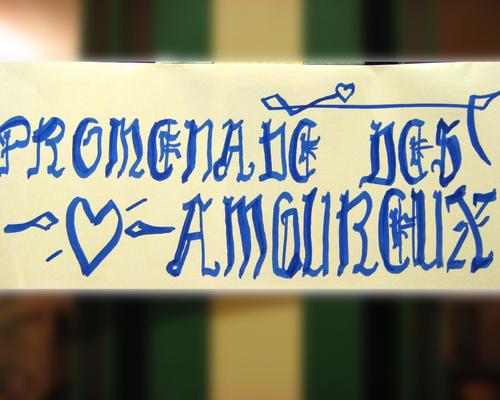 PROMENADE DES
AMOUREUX